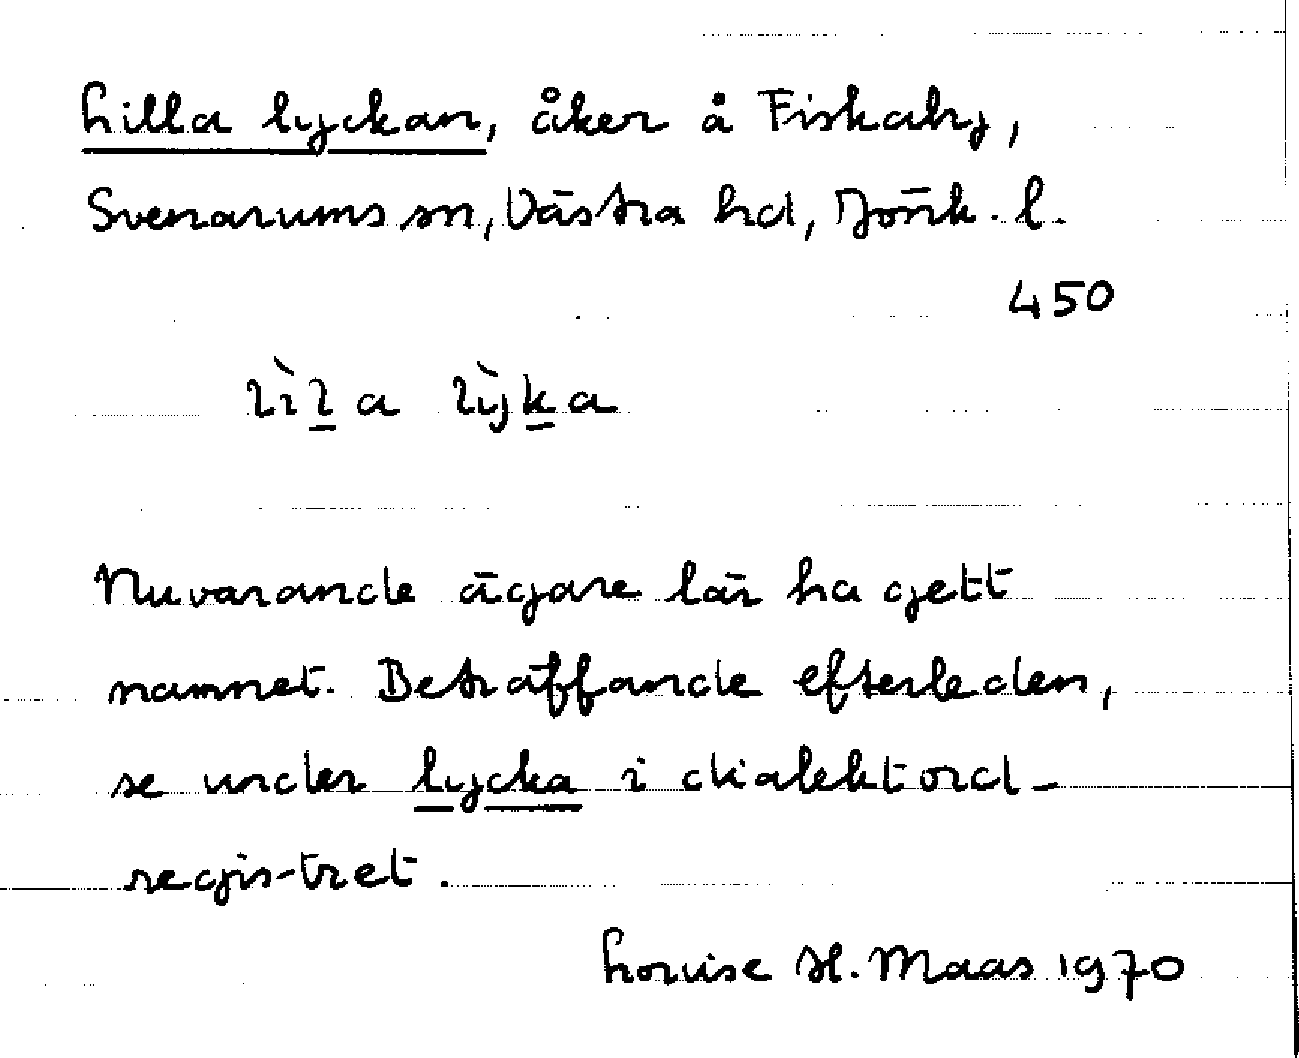 Lilla lyckan, åker å Fiskaby,
Svenarums sn, Västra hd, Jönk. l.
450
lìl̲a lỳk̲a
Nuvarande ägare lär ha gett
namnet. Beträffande efterleden,
se under lycka i dialektord-
registret.
Louise H. Maas 1970